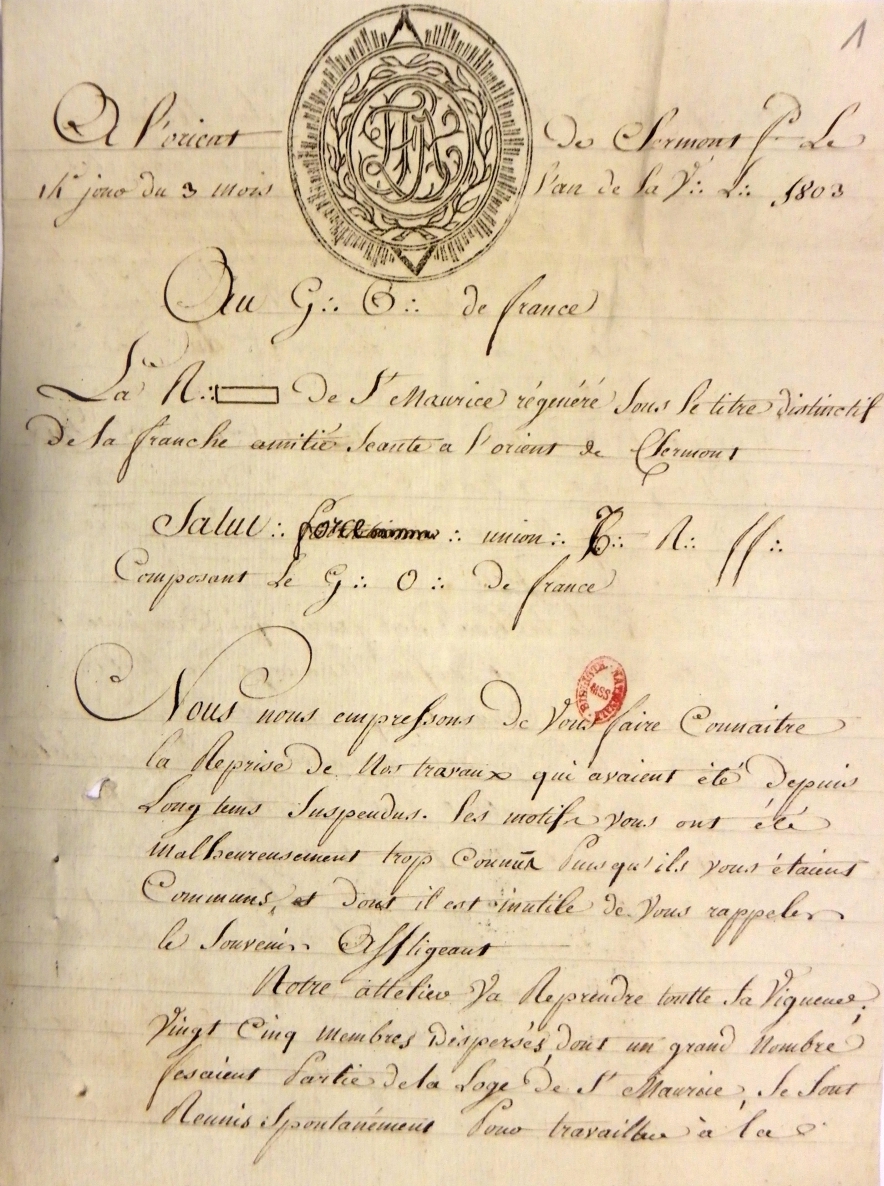 1
A l'orient de Clermont f. Le
1er jour du 3 mois l'an de la V∴ L∴ 1803
Au G∴ O∴ de france
La R∴ de St Maurice régénéré sous le titre distinctif
De la franche amitié seante a l'orient de Clermont
Salut∴ force ∴ union∴ T∴ R∴ ff∴
Composant Le G∴ O∴ de france
Nous nous empressons de vous faire Connaitre
la Reprise de Nos travaux qui avaient été depuis
Long tems Suspendus. les motifs vous ont été
malheureusement trop Connus Puisqu'ils vous étaient
Communs, et dont il est inutile de vous rappeler
le Souvenir Affligeant
Notre attelier va Reprendre toutte sa Vigueur;
Vingt Cinq membres Dispersés, dont un grand Nombre
fesaient Partie de la Loge de St Maurice, se sont
Reunis Spontanément Pour travailler à la